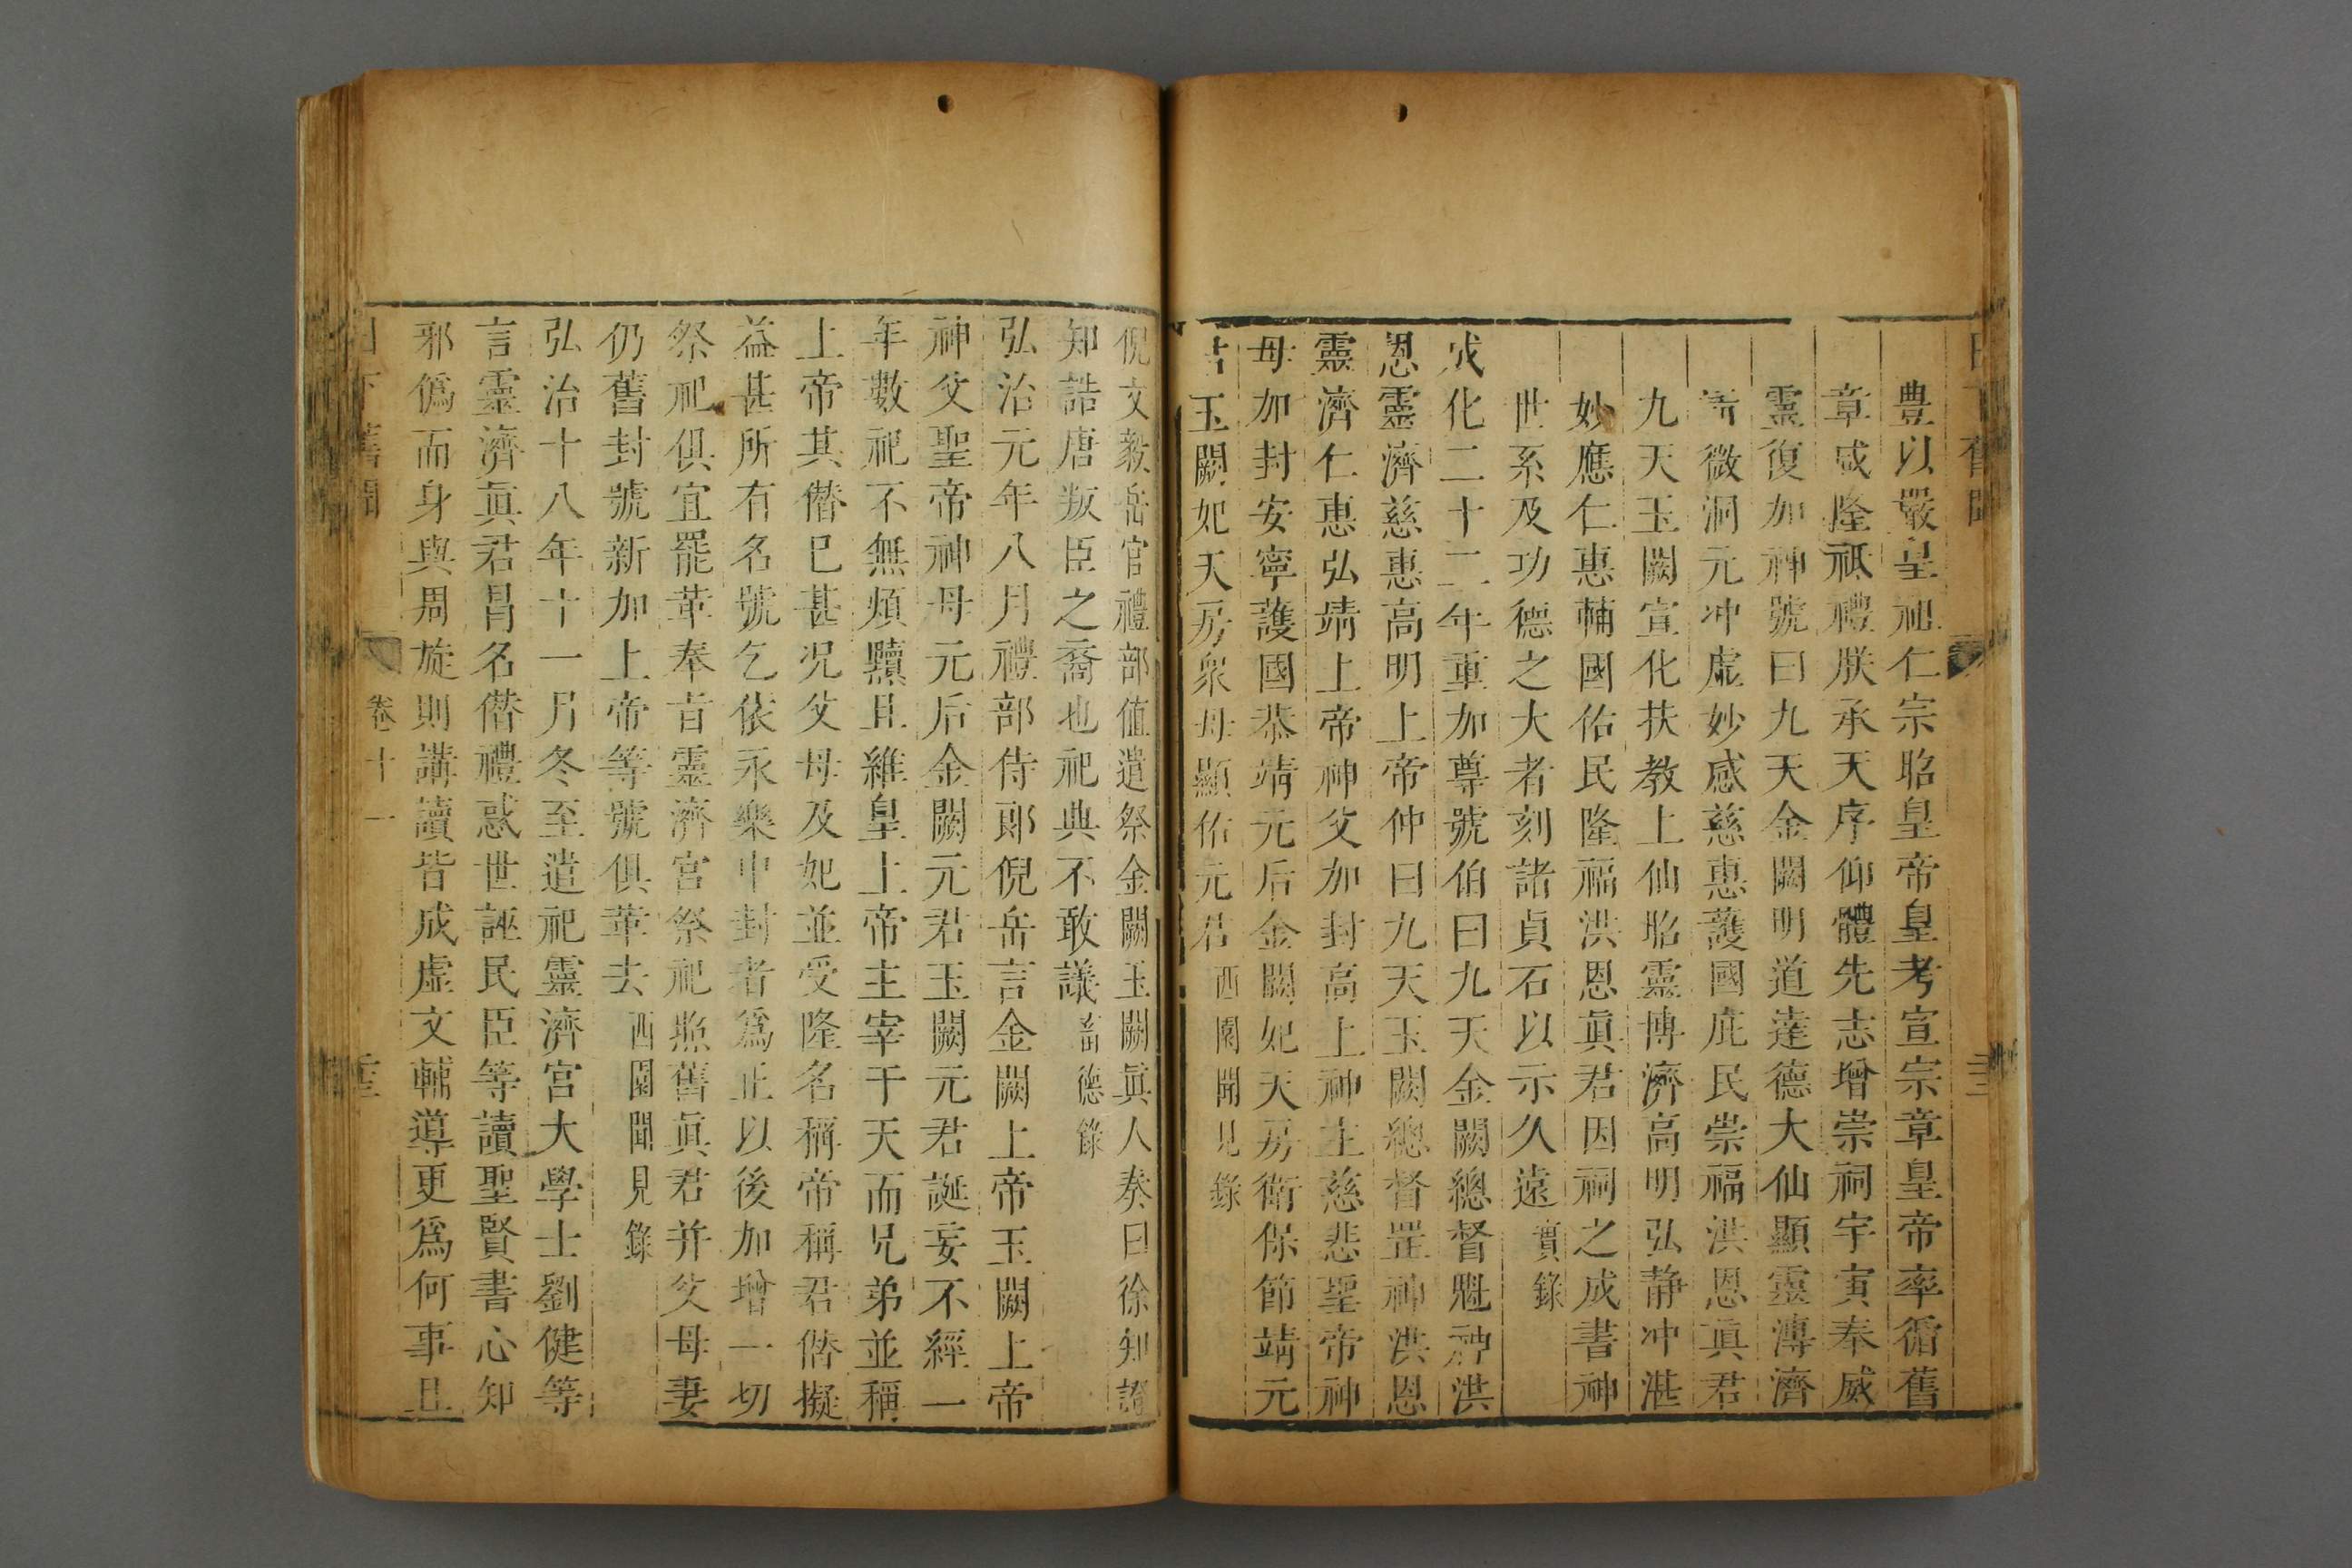 日下舊聞
豊以嚴皇祀仁宗昭皇帝皇考宣宗章皇帝率循舊
章咸隆祗禮朕承天序仰體先志增崇祠宇寅奉威
靈復加神號曰九天金闕明道達德大仙顯靈溥濟
微洞元冲虛妙感慈惠護國庇民崇福洪恩眞君
九天玉闕宣化扶教上仙昭靈博濟高明弘静冲湛
妙應仁惠輔國佑民隆福洪恩眞君因祠之成書神
世系及功德之大者刻諸貞石以示久遠實錄
成化二十二年重加尊號伯曰九天金闕總督魁神洪
恩靈濟慈惠高明上帝仲曰九天玉闕總督罡神洪恩
靈濟仁惠弘靖上帝神父加封高上神主慈悲聖帝神
母加封安寧護國恭靖元后金闕妃天房衛保節靖元
君玉闕妃天房衆母顯佑元君西園聞見錄
倪文毅岳官禮部値遣祭金闕玉闕眞人奏曰徐知證
知誥唐叛臣之裔也祀典不敢議畜德錄
弘治元年八月禮部侍郞倪岳言金闕上帝玉闕上帝
神父聖帝神母元后金闕元君玉闕元君誕妄不經一
年數祀不無煩黷且維皇上帝主宰于天而兄弟並稱
上帝其僭已甚况父母及妃並受隆名稱帝稱君僭擬
益甚所有名號乞依永樂中封者爲正以後加增一切
祭祀俱宜罷革奉旨靈濟宮祭祀照舊眞君并父母妻
仍舊封號新加上帝等號俱革去西園聞見錄
弘治十八年十一月冬至遣祀靈濟宮大學士劉健等
言靈濟眞君冒名僭禮惑世誣民臣等讀聖賢書心知
邪僞而身與周旋則講讀皆成虛文輔導更爲何事且
日下舊聞 卷十一